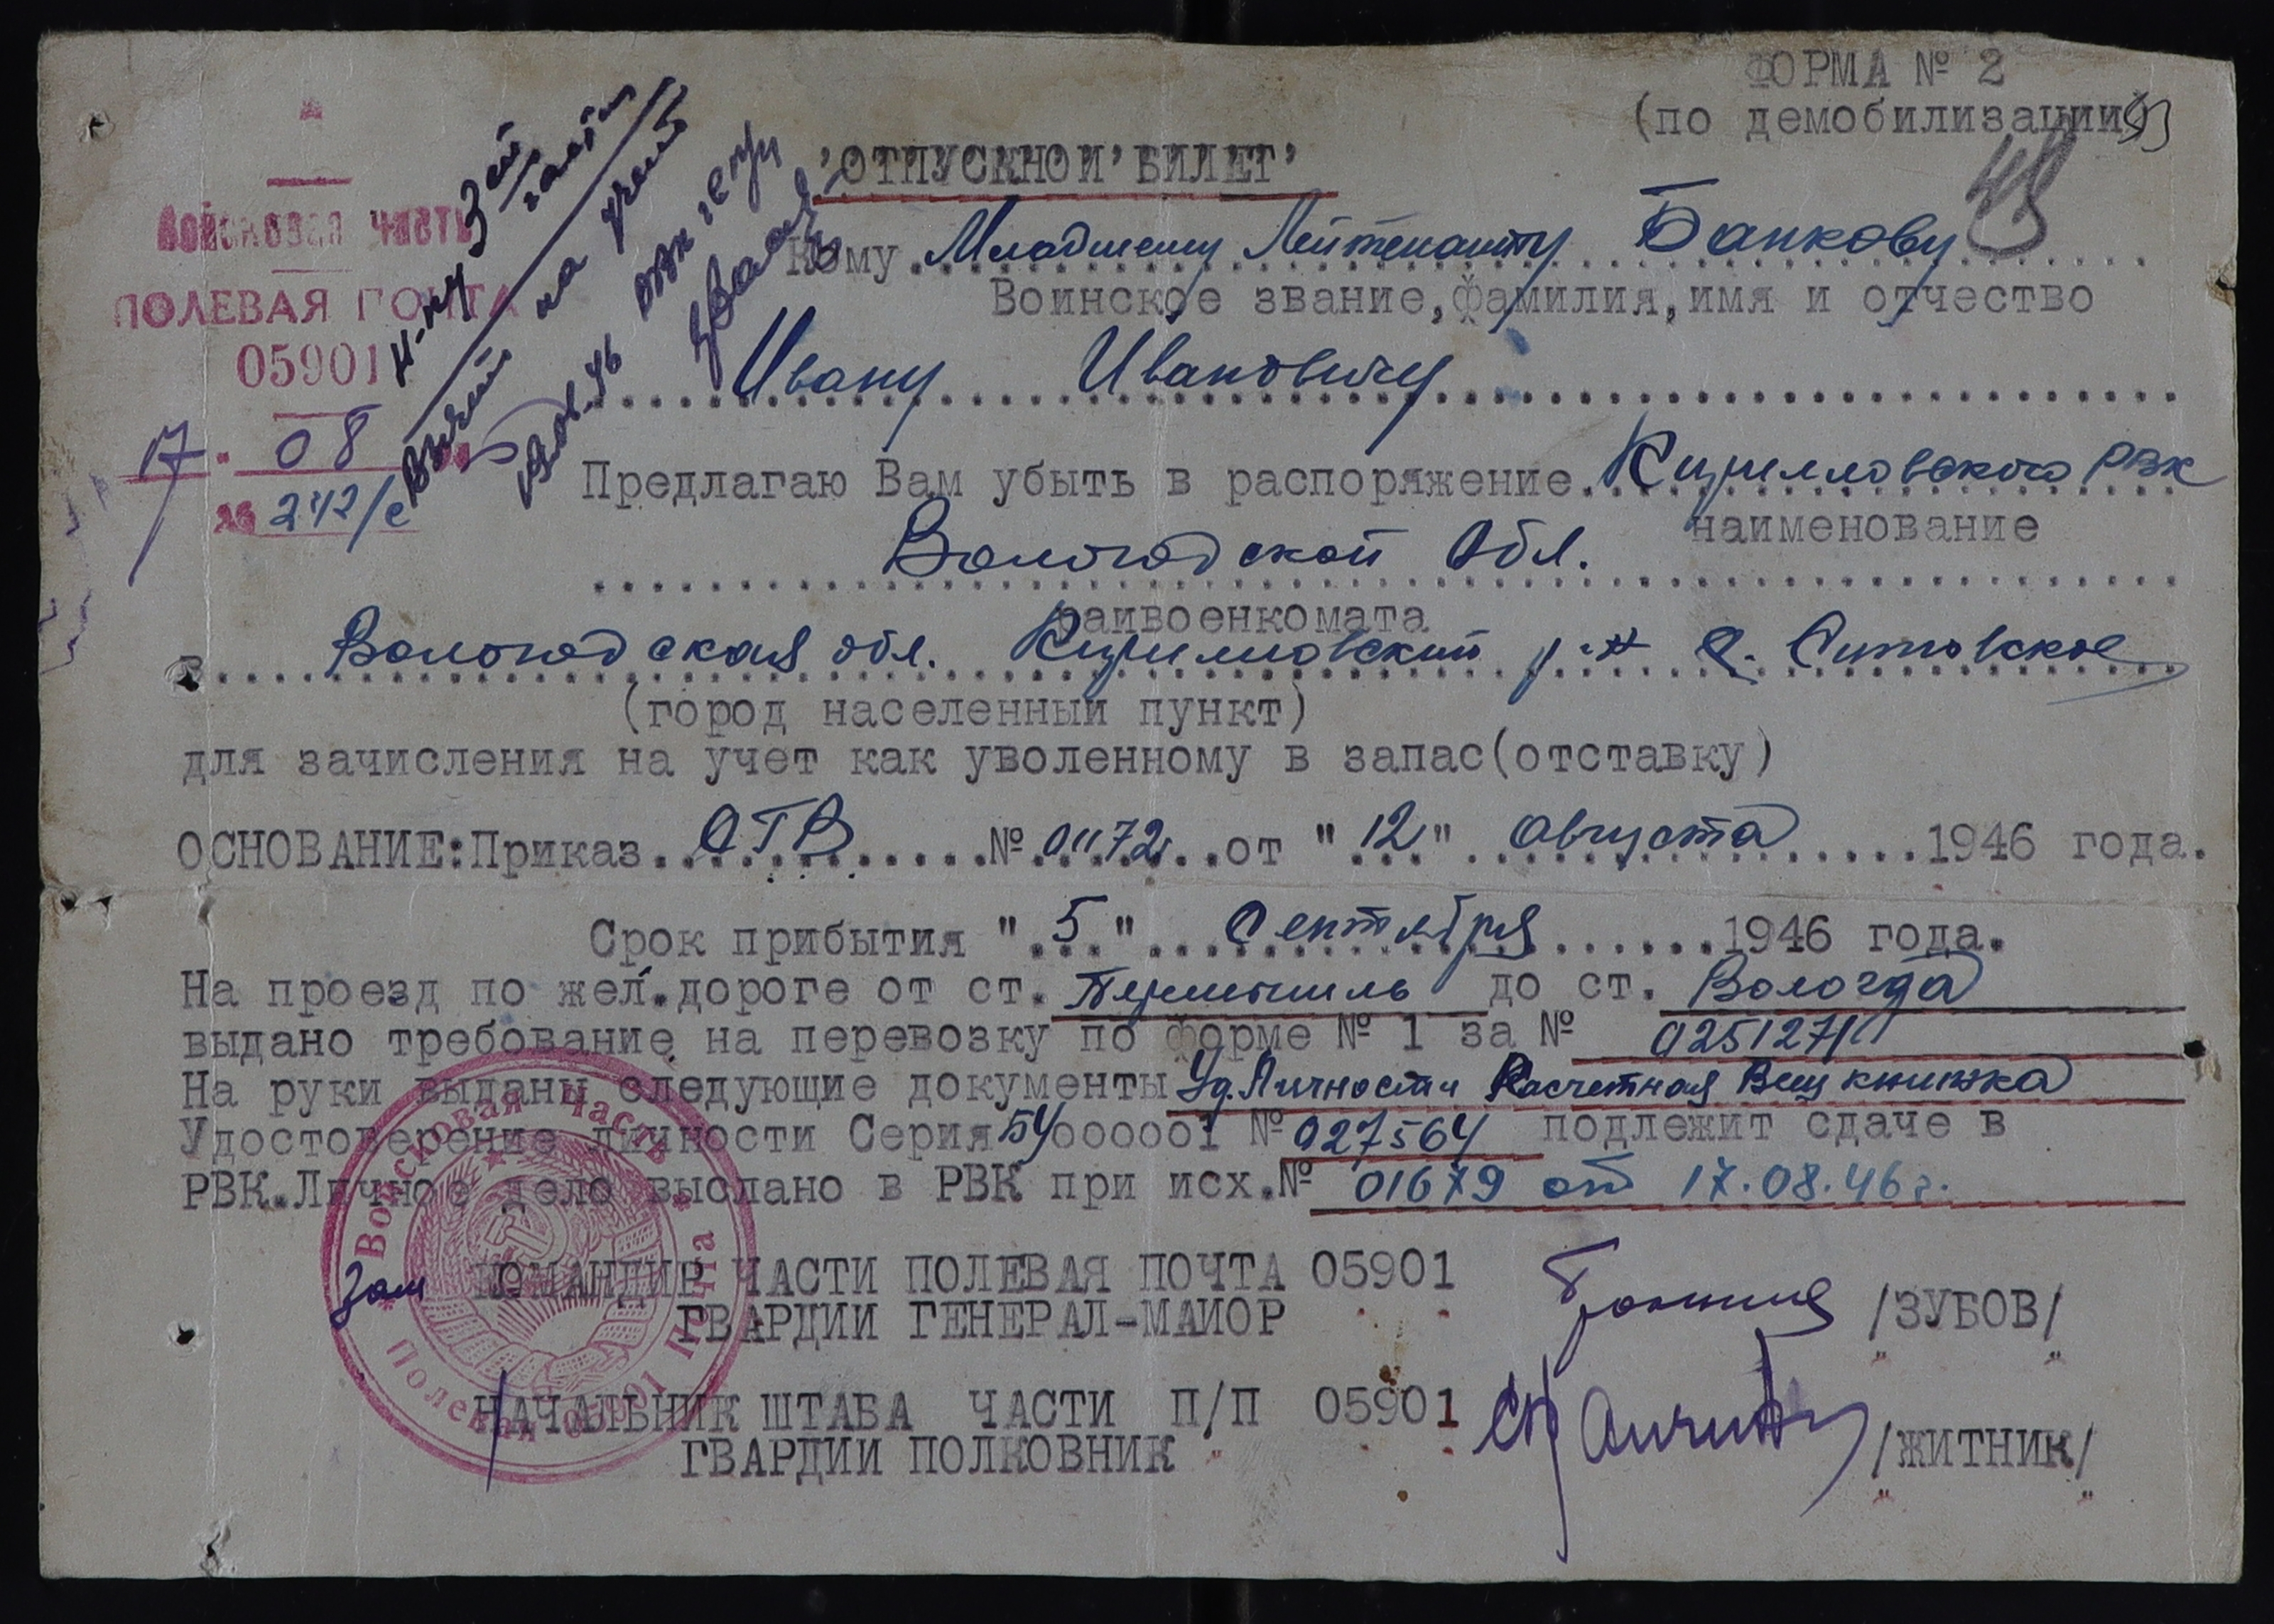 ФОРМА № 2
(по демобилизации)
48
'ОТПУСКНОЙ' БИЛЕТ'
Войсковая часть
ПОЛЕВАЯ ПОЧТА
05901
17. 08
№ 242/с
Н-ку 3 ей части
Взять на учет
Кому Младшему Лейтенанту Банкову
Воинское звание, фамилия, имя и отчество
Ивану Ивановичу
Предлагаю Вам убыть в распоряжение Кирилловского РВК
наименование
Вологодской Обл.
райвоенкомата
в Вологодская обл. Кирилловский р-н
(город населенный пункт)
для зачисления на учет как уволенному в запас(отставку)
ОСНОВАНИЕ: Приказ СГВ № 01172 от "12" августа 1946 года.
Срок прибытия "5" Сентября 1946 года.
На проезд по жел.дороге от ст. Перемышль до ст. Вологда
выдано требование на перевозку по форме № 1 за №
На руки выданы следующие документы Уд. Личности Расчетная Вещ книжка
Удостоверение личности Серия 000001 № 027564 подлежит сдаче в
РВК. Личное дело выслано в РВК при исх.№ 01679 от 17.08.46г.
Зам КОМАНДИР ЧАСТИ ПОЛЕВАЯ ПОЧТА 05901
ГВАРДИИ ГЕНЕРАЛ-МАЙОР /ЗУБОВ/
НАЧАЛЬНИК ШТАБА ЧАСТИ П/П 05901
ГВАРДИИ ПОЛКОВНИК /ЖИТНИК/
Войсковая часть * Полевая Почта 05901 *